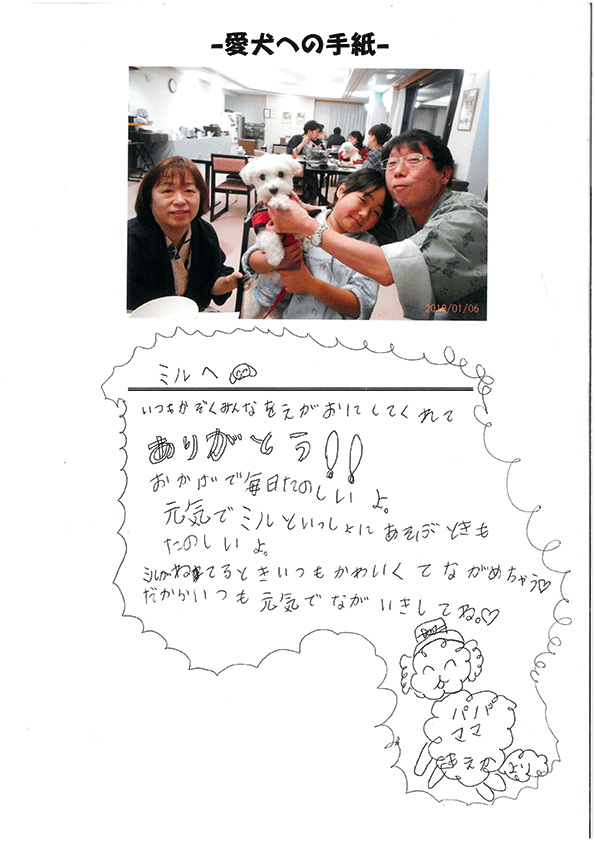 -愛犬への手紙-
2010/01/06
ミルへ
いつもかぞくみんなをえがおにしてくれて
ありがとう!!
おかげで毎日たのしいよ。
元気でミルといっしょにあそぶときも
たのしいよ。
ミルがねてるときいつもかわいくてながめちゃう♡
だからいつも元気でながいきしてね。♡
パパ
ママ
より